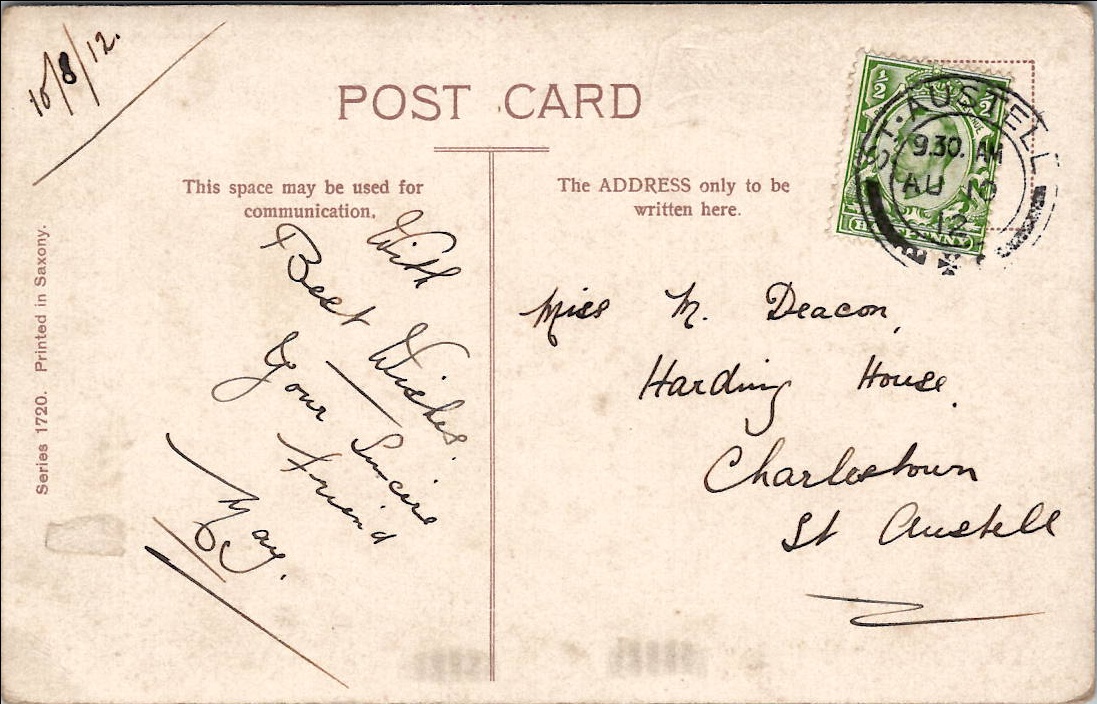 10/8/12.
POST CARD
This space may be used for
communication.
The ADDRESS only to be
written here.
½
½
HALFPENNY
ST. AUSTELL
9.30. AM
AU 10
12
Series 1720. Printed in Saxony.
With
Best Wishes.
Your Sincere
Friend
May.
Miss M. Deacon,
Harding House.
Charlestown
St Austell